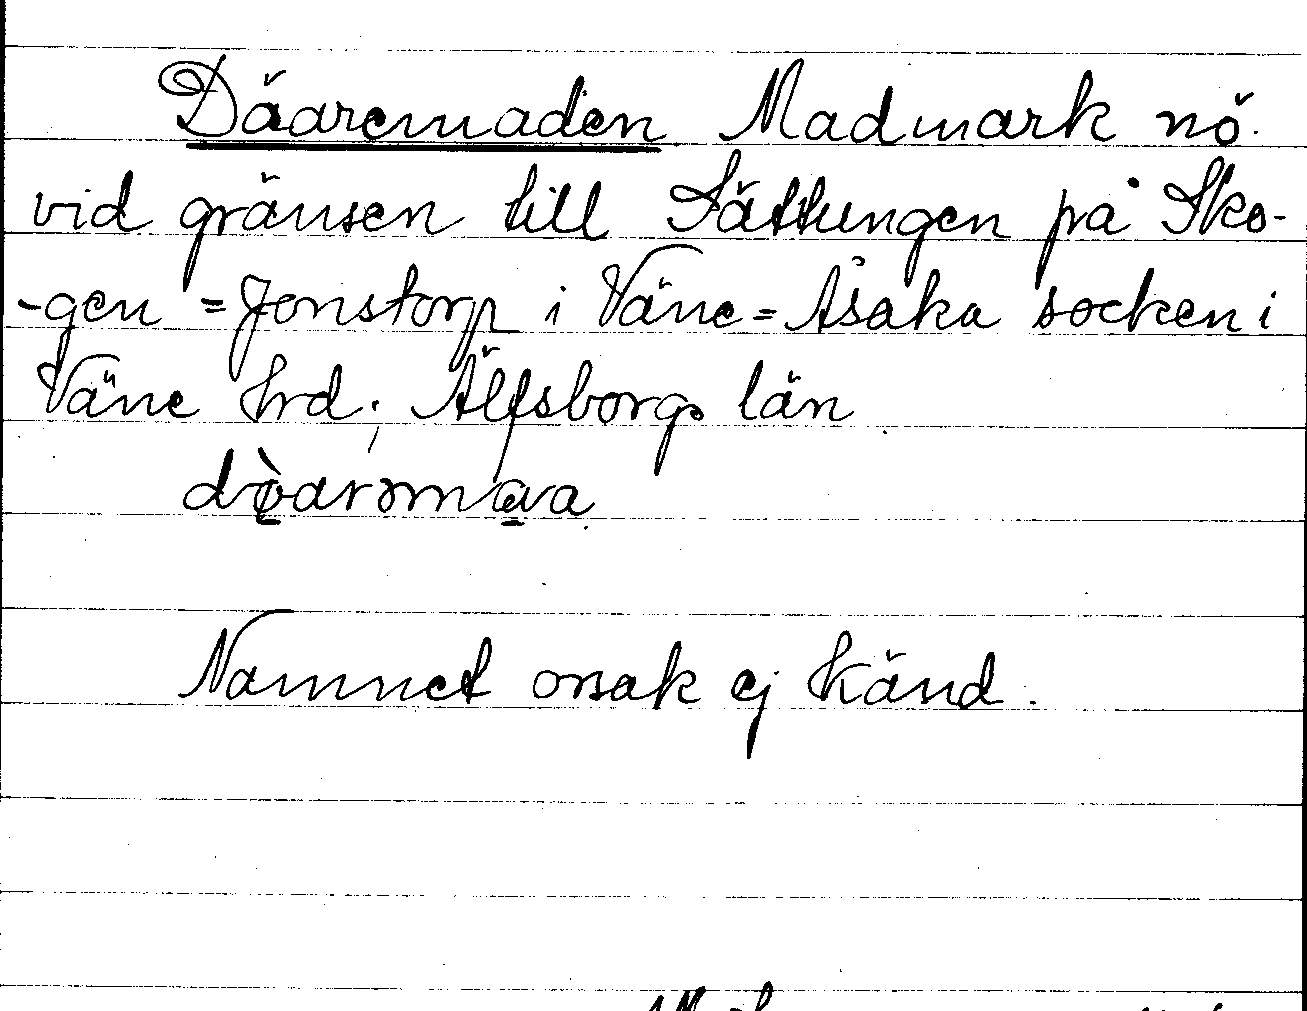 Däaremaden Madmark nö.
vid gränsen till Sättungen på Sko-
-gen = Jonstorp i Väne = Åsaka socken i
Väne hrd; Älfsborgs län
Namnet orsak ej känd.